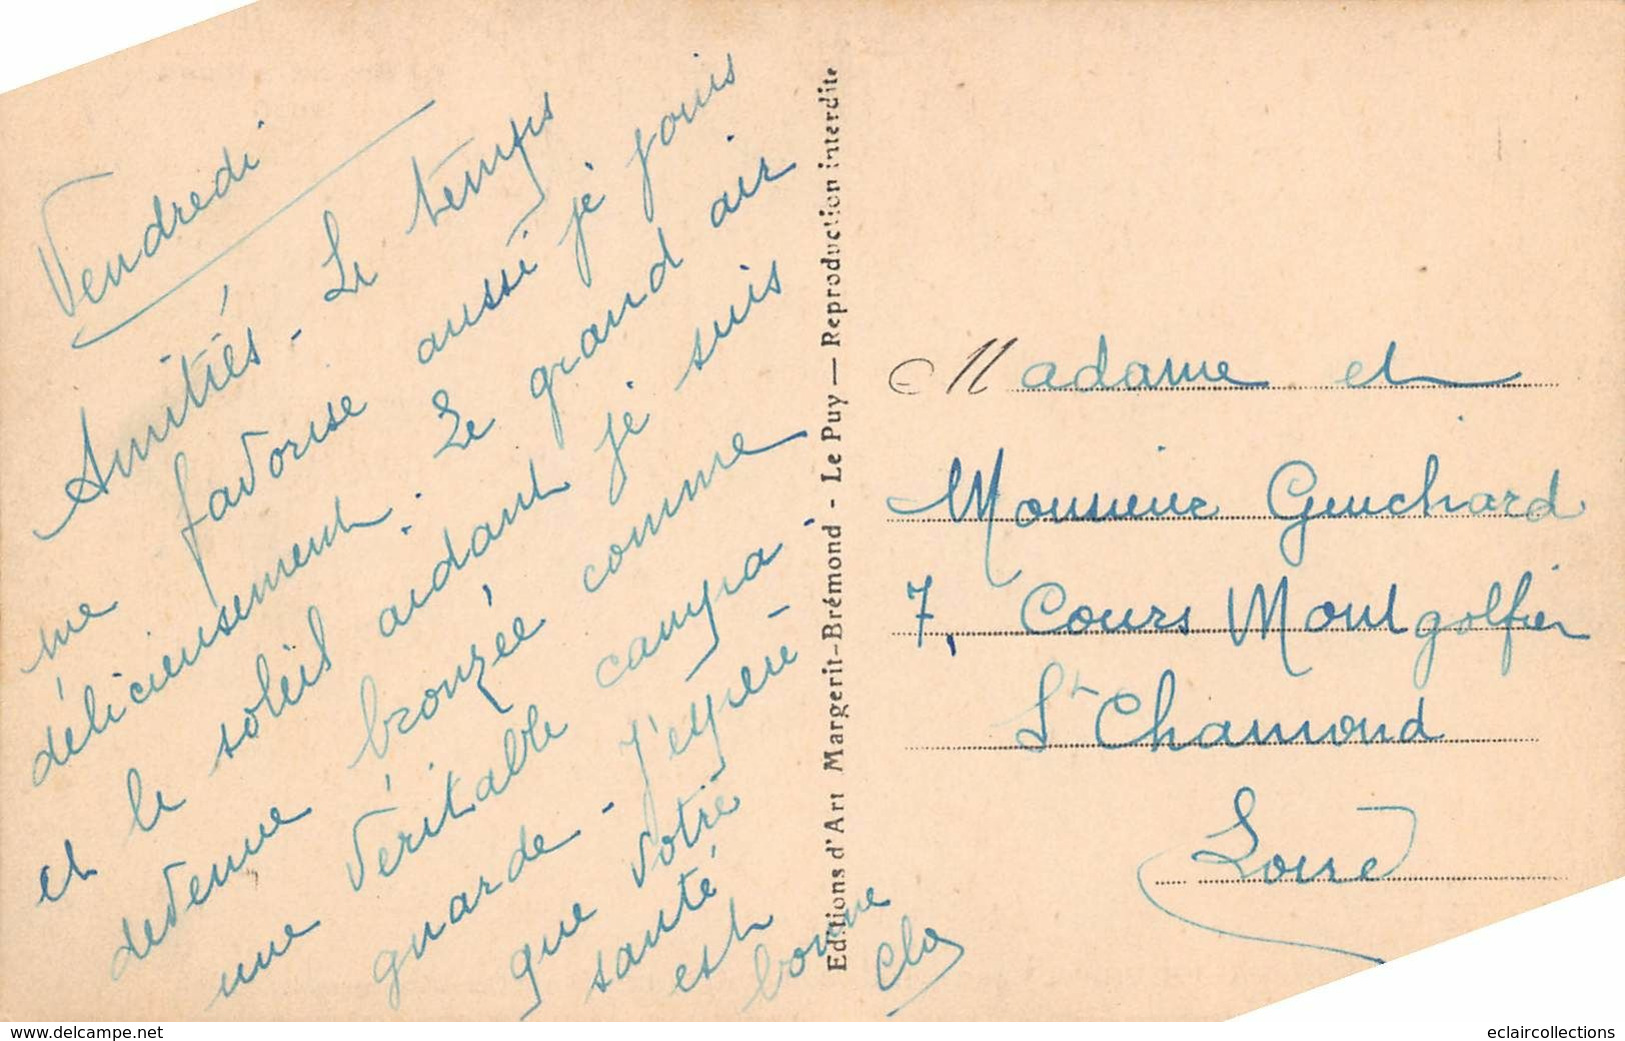 Vendredi
Amitiés - Le temps
me favorise aussi je jouis
délicieusement. Le grand air
et le soleil aidant je suis
devenue bronzée comme
une véritable campa-
gnarde - J'espère -
que votre
santé
est
bonne
Editions d'Art Margerit-Brémond - Le Puy — Reproduction interdite
Madame et
Monsieur Genchard
7, Cours Montgolfier
St Chamond
Loire
www.delcampe.net
eclaircollections